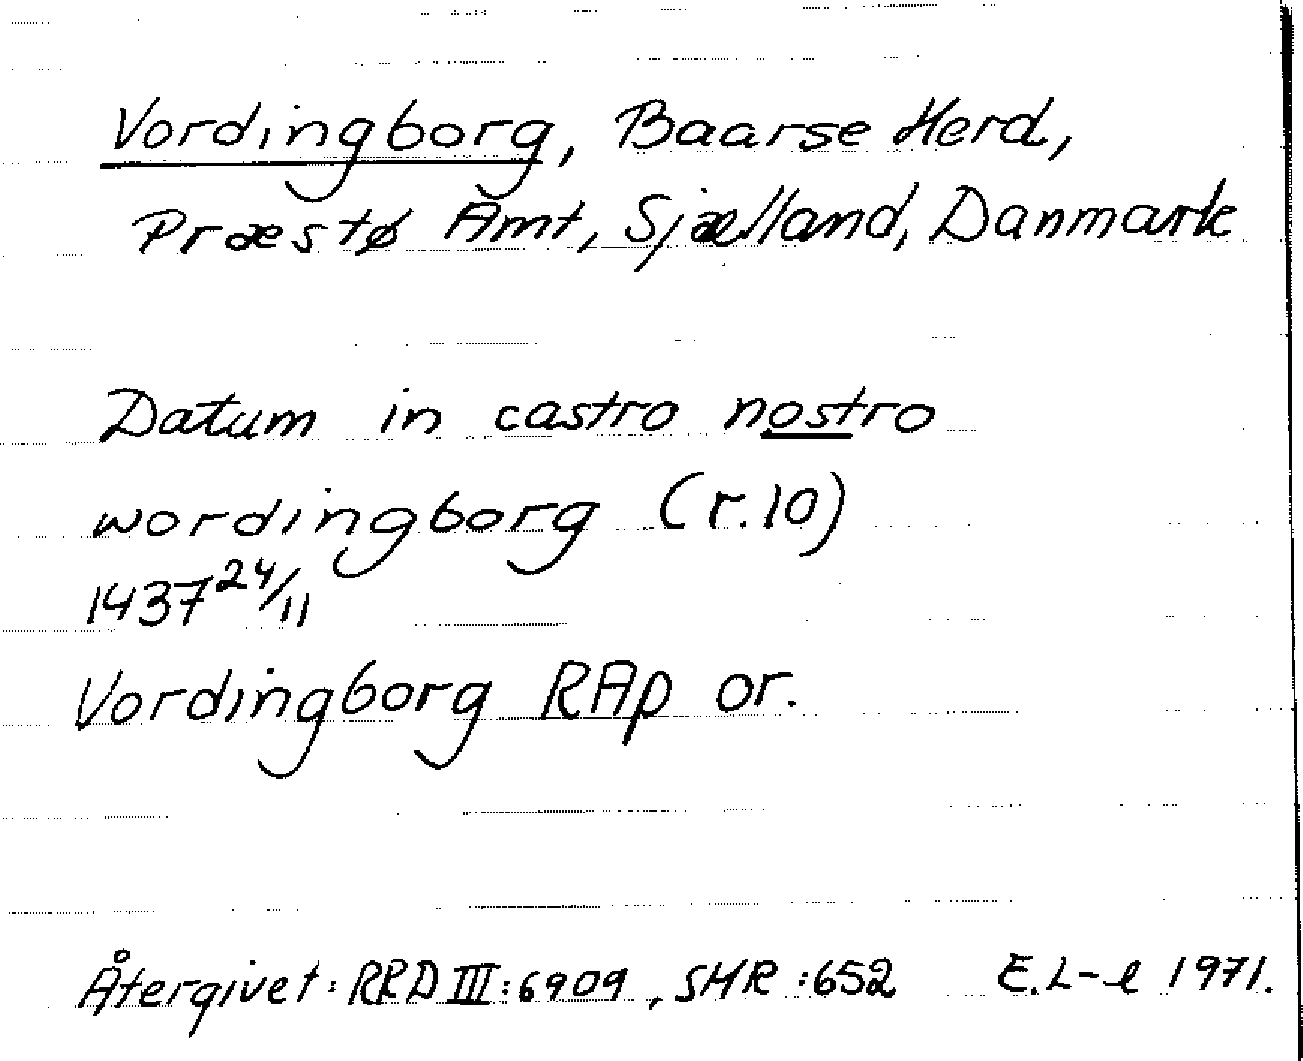 Vordingborg, Baarse Herd,
Præstø Amt, Sjælland, Danmark
Datum in castro nostro
wordingborg (r.10)
1437 24/11
Vordingborg RAp or.
Återgivet: RRD III:6909, SMR:652 E.L-l 1971.